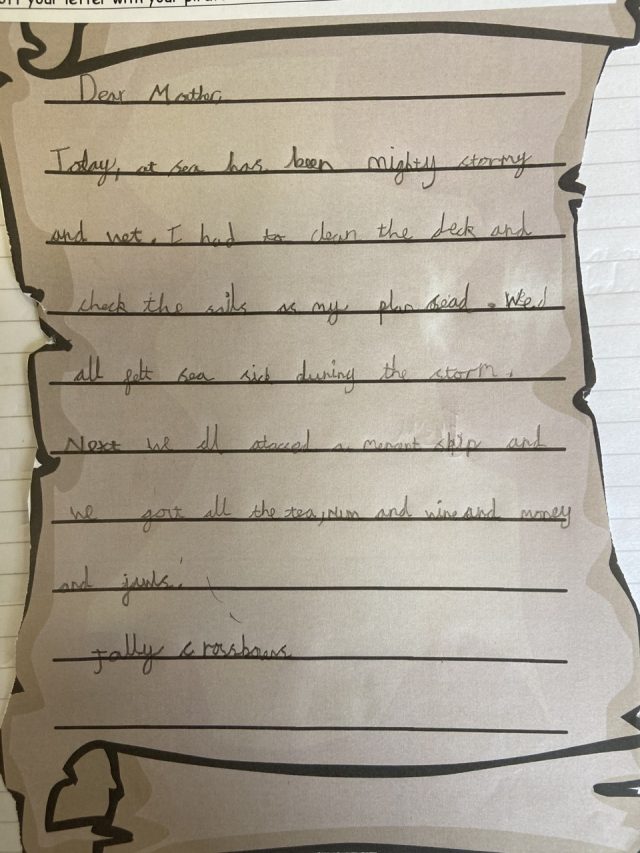 off your letter with your pira
Dear Mother,
Today, at sea has been mighty stormy
and wet. I had to clean the deck and
check the sails as my plan said. We
all felt sea sick duning the storm.
Next we all atacced a merant ship and
we gort all the tea, rum and wine and money
and juwls.
Jolly crosbows